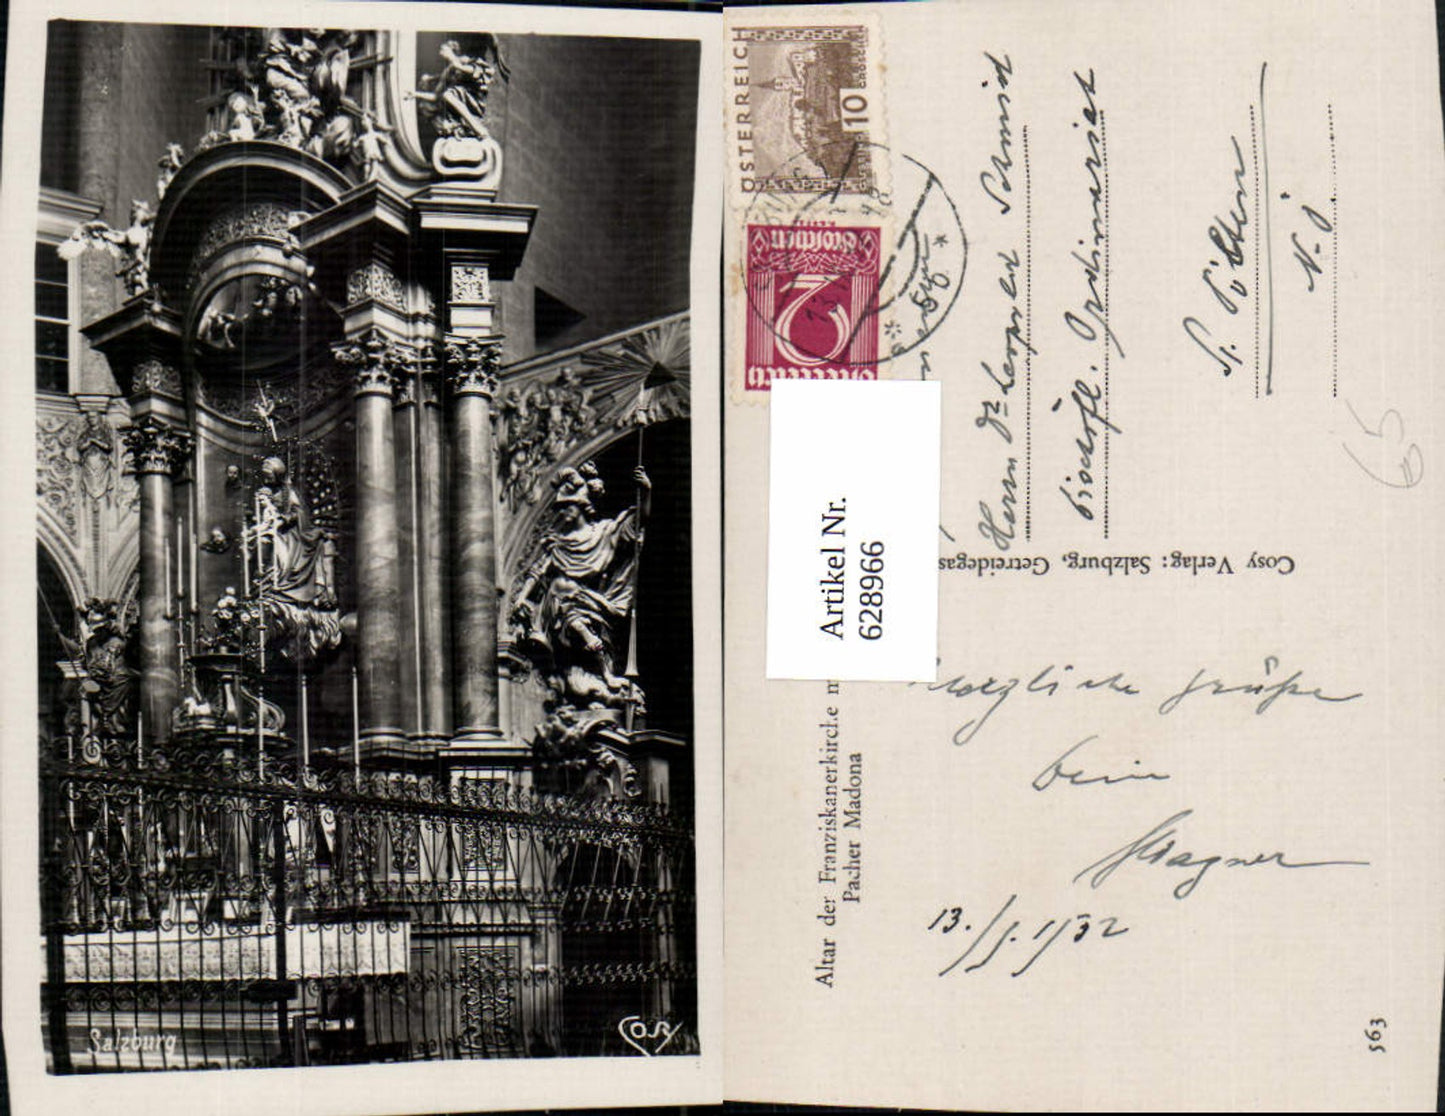 Salzburg
COSY
ÖSTERREICH
10
GROSCHEN
Österreich
2
Groschen
Artikel Nr.
628966
Herrn Dr. Leopold Schmidt
bischöfl. Ordinariat
St. Pölten
N.
65
Cosy Verlag: Salzburg, Getreidegas
Altar der Franziskanerkirche m
Pacher Madona
Herzliche Grüße
Wagner
13./5. 1932
563